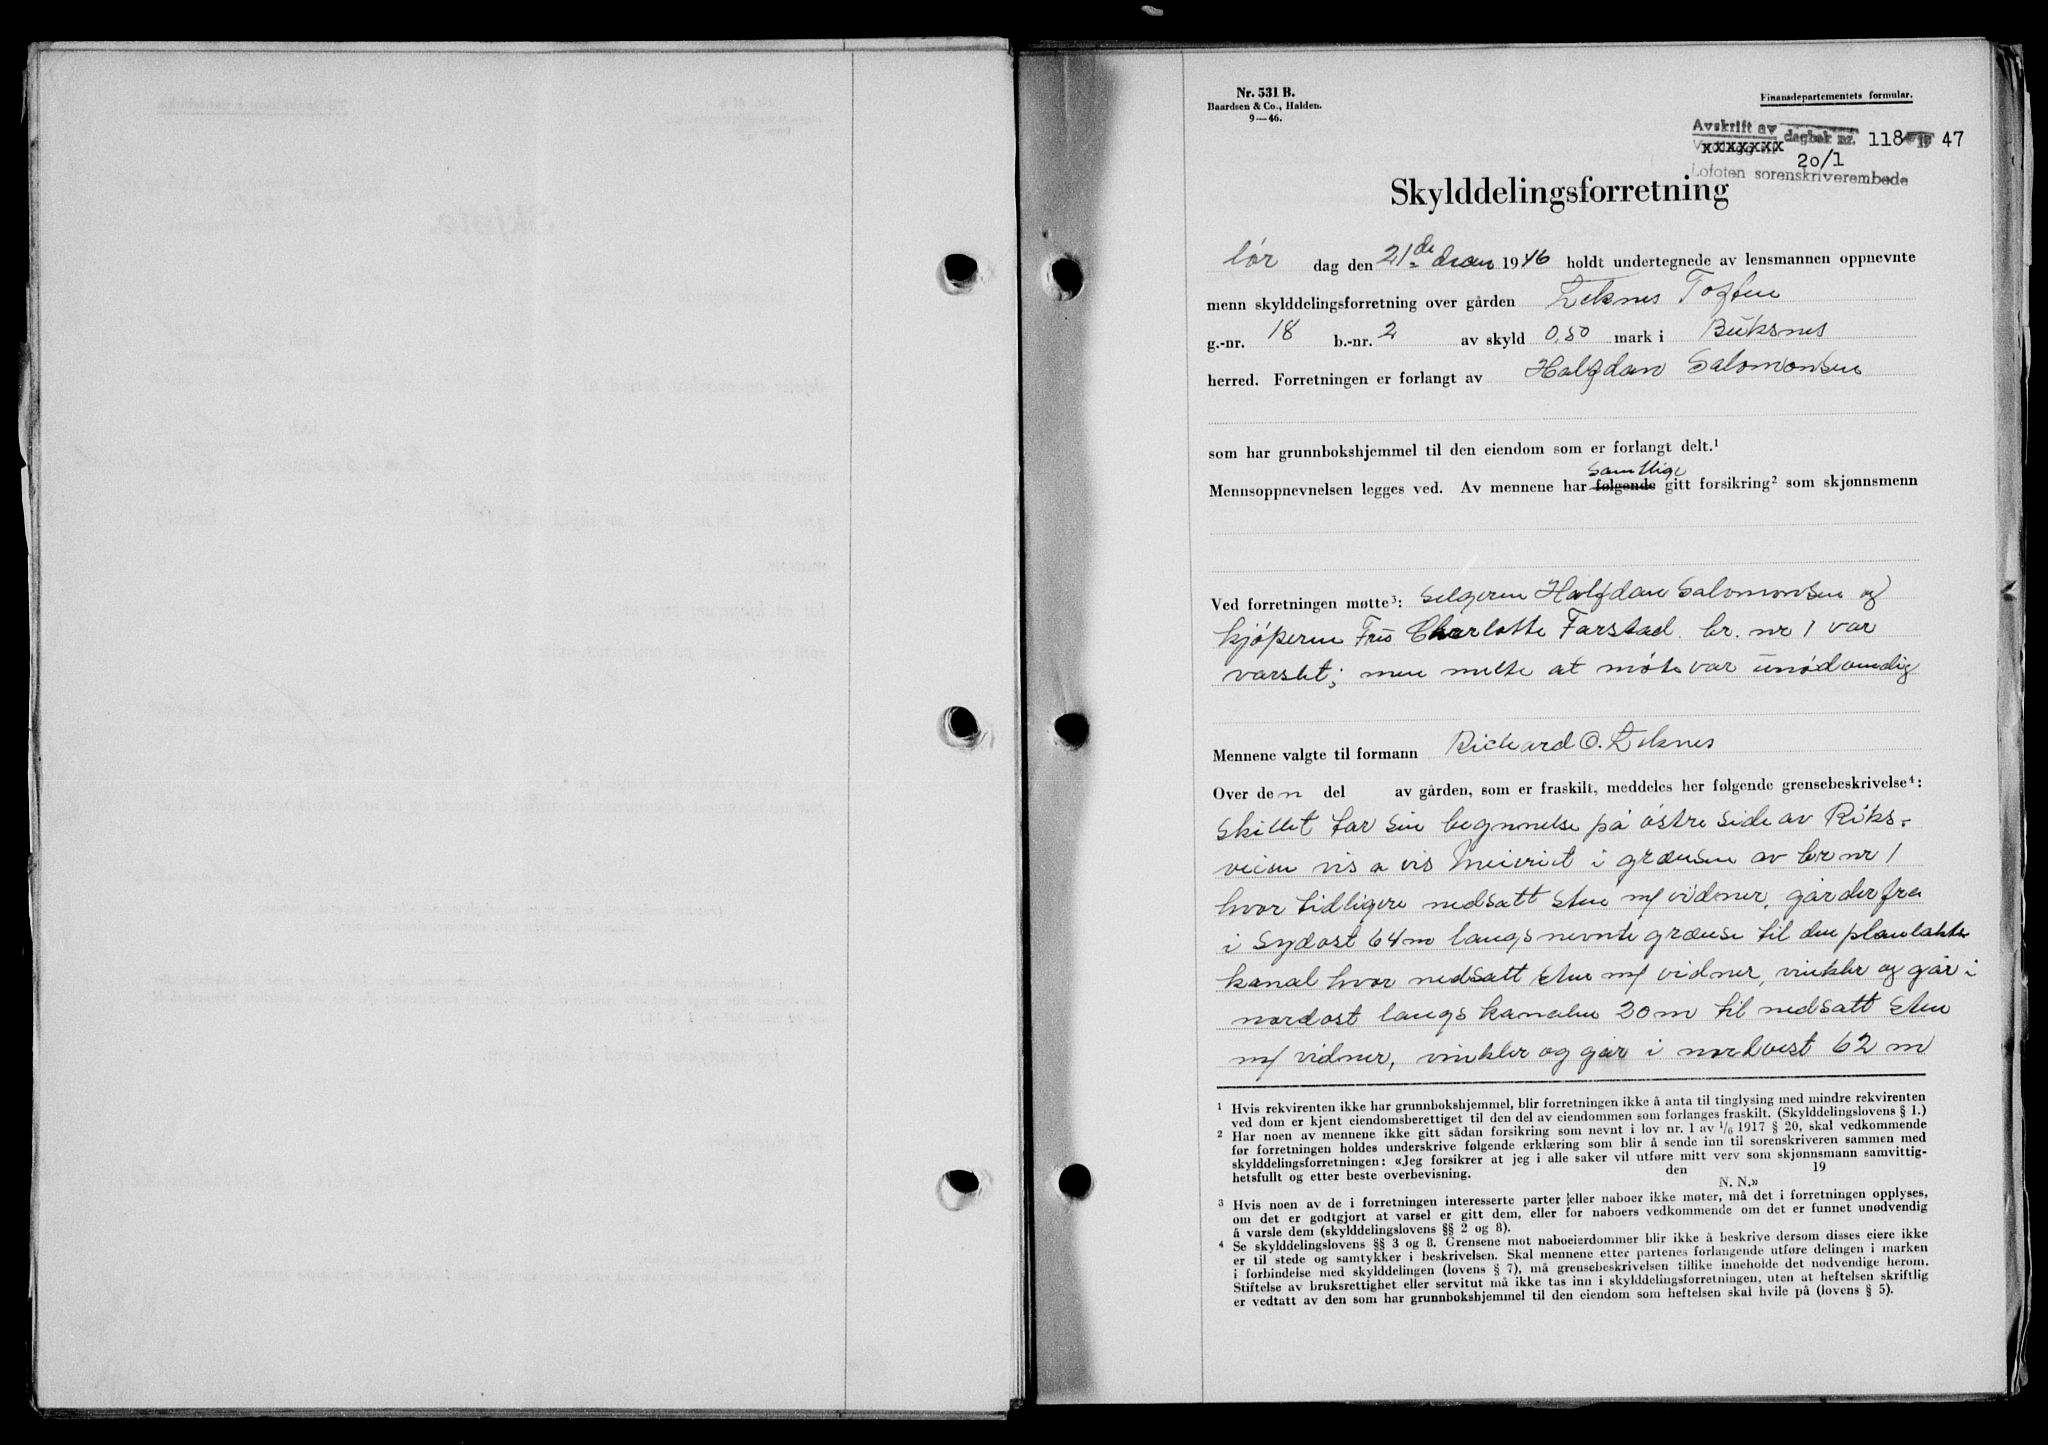 Nr. 531 B.
Baardsen & Co., Halden.
9—46.
Finansdepartementets formular.
Avskrift av dagbok nr. 118 19 47
xxxxxxx
20/1
Lofoten sorenskriverembede
Skylddelingsforretning
lør dag den 21de 1946 holdt undertegnede av lensmannen oppnevnte
menn skylddelingsforretning over gården Leknes Toften
g.-nr. 18 b.-nr. 2 av skyld 0,50 mark i Buksnes
herred. Forretningen er forlangt av Halfdan Salomonsen
som har grunnbokshjemmel til den eiendom som er forlangt delt.¹
samtlige
Mennsoppnevnelsen legges ved. Av mennene har følgende gitt forsikring² som skjønnsmenn
Ved forretningen møtte³: selgeren Halfdan Salomonsen og
kjøperen Frø Charlotte Farstad. br. nr 1 var
varslet; men melte at møte var unødvendig
Mennene valgte til formann Richard O. Leknes
Over den del av gården, som er fraskilt, meddeles her følgende grensebeskrivelse⁴:
Skillet tar sin begynnelse på østre side av Riks-
veien vis a vis Meieriet i grænsen av br nr 1
hvor tidligere nedsatt sten m/ vidner, går derfra
i Sydost 64 m langs nevnte grænse til den planlakte
kanal hvor nedsatt sten m/ vidner, vinkler og går i
nordost langs kanalen 20 m til nedsatt sten
m/ vidner, vinkler og går i nordvest 62 m
¹ Hvis rekvirenten ikke har grunnbokshjemmel, blir forretningen ikke å anta til tinglysing med mindre rekvirenten
ved dom er kjent eiendomsberettiget til den del av eiendommen som forlanges fraskilt. (Skylddelingslovens § 1.)
² Har noen av mennene ikke gitt sådan forsikring som nevnt i lov nr. 1 av 1/6 1917 § 20, skal vedkommende
før forretningen holdes underskrive følgende erklæring som blir å sende inn til sorenskriveren sammen med
skylddelingsforretningen: «Jeg forsikrer at jeg i alle saker vil utføre mitt verv som skjønnsmann samvittig-
hetsfullt og etter beste overbevisning. den 19
N. N.»
³ Hvis noen av de i forretningen interesserte parter eller naboer ikke møter, må det i forretningen opplyses,
om det er godtgjort at varsel er gitt dem, eller for naboers vedkommende om det er funnet unødvendig
å varsle dem (skylddelingslovens §§ 2 og 8).
⁴ Se skylddelingslovens §§ 3 og 8. Grensene mot naboeierdommer blir ikke å beskrive dersom disses eiere ikke
er til stede og samtykker i beskrivelsen. Skal mennene etter partenes forlangende utføre delingen i marken
i forbindelse med skylddelingen (lovens § 7), må grensebeskrivelsen tillike inneholde det nødvendige herom.
Stiftelse av bruksrettighet eller servitut må ikke tas inn i skylddelingsforretningen, uten at heftelsen skriftlig
er vedtatt av den som har grunnbokshjemmel til den eiendom som heftelsen skal hvile på (lovens § 5).